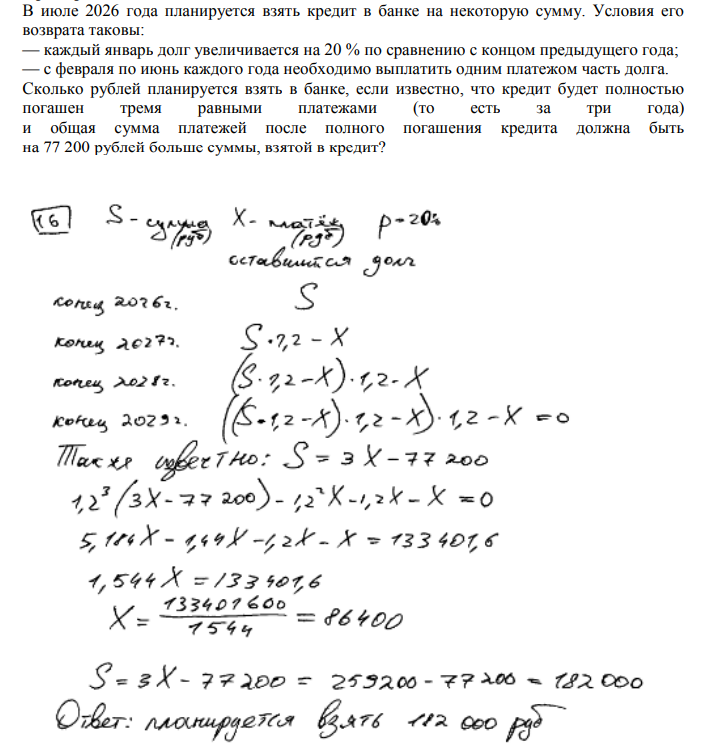 В июле 2026 года планируется взять кредит в банке на некоторую сумму. Условия его
возврата таковы:
— каждый январь долг увеличивается на 20 % по сравнению с концом предыдущего года;
— с февраля по июнь каждого года необходимо выплатить одним платежом часть долга.
Сколько рублей планируется взять в банке, если известно, что кредит будет полностью
погашен тремя равными платежами (то есть за три года)
и общая сумма платежей после полного погашения кредита должна быть
на 77 200 рублей больше суммы, взятой в кредит?
16 S - сумма (руб) X - платёж (руб) p = 20%
оставшийся долг
конец 2026г. S
конец 2027г. S·1,2 - X
конец 2028г. (S·1,2 - X)·1,2 - X
конец 2029г. ((S·1,2 - X)·1,2 - X)·1,2 - X = 0
Также известно: S = 3X - 77 200
1,2³(3X - 77 200) - 1,2²X - 1,2X - X = 0
5,184X - 1,44X - 1,2X - X = 133 401,6
1,544X = 133 401,6
X = 133401600/1544 = 86400
S = 3X - 77 200 = 259200 - 77 200 = 182 000
Ответ: планируется взять 182 000 руб